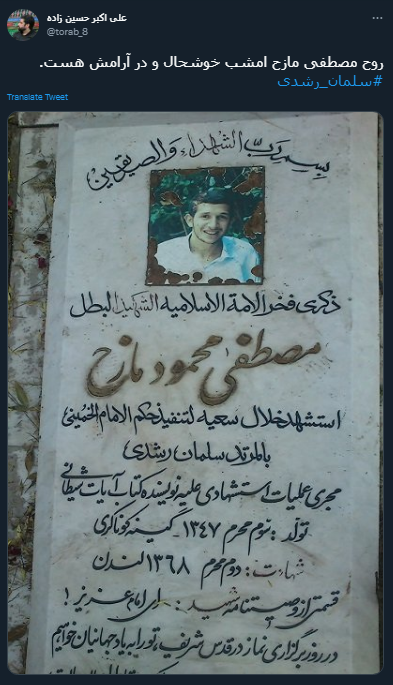 علی اکبر حسین زاده
@torab_8
روح مصطفی مازح امشب خوشحال و در آرامش هست.
#سلمان_رشدی
Translate Tweet
بسم ربّ الشهداء والصدیقین
ذکری فخر الامة الاسلامیه الشهید البطل
مصطفی محمود مازح
استشهد خلال سعیه لتنفیذ حکم الامام الخمینی
بالمرتد سلمان رشدی
مجری عملیات استشهادی علیه نویسنده کتاب آیات شیطانی
تولد : سوم محرم ۱۳۴۷ گینه کوناکری
شهادت : دوم محرم ۱۳۶۸ لندن
قسمتی از وصیتنامه شهید : ای امام عزیز !
در روز برگزاری نماز در قدس شریف، تو را به یاد جهانیان خواهیم